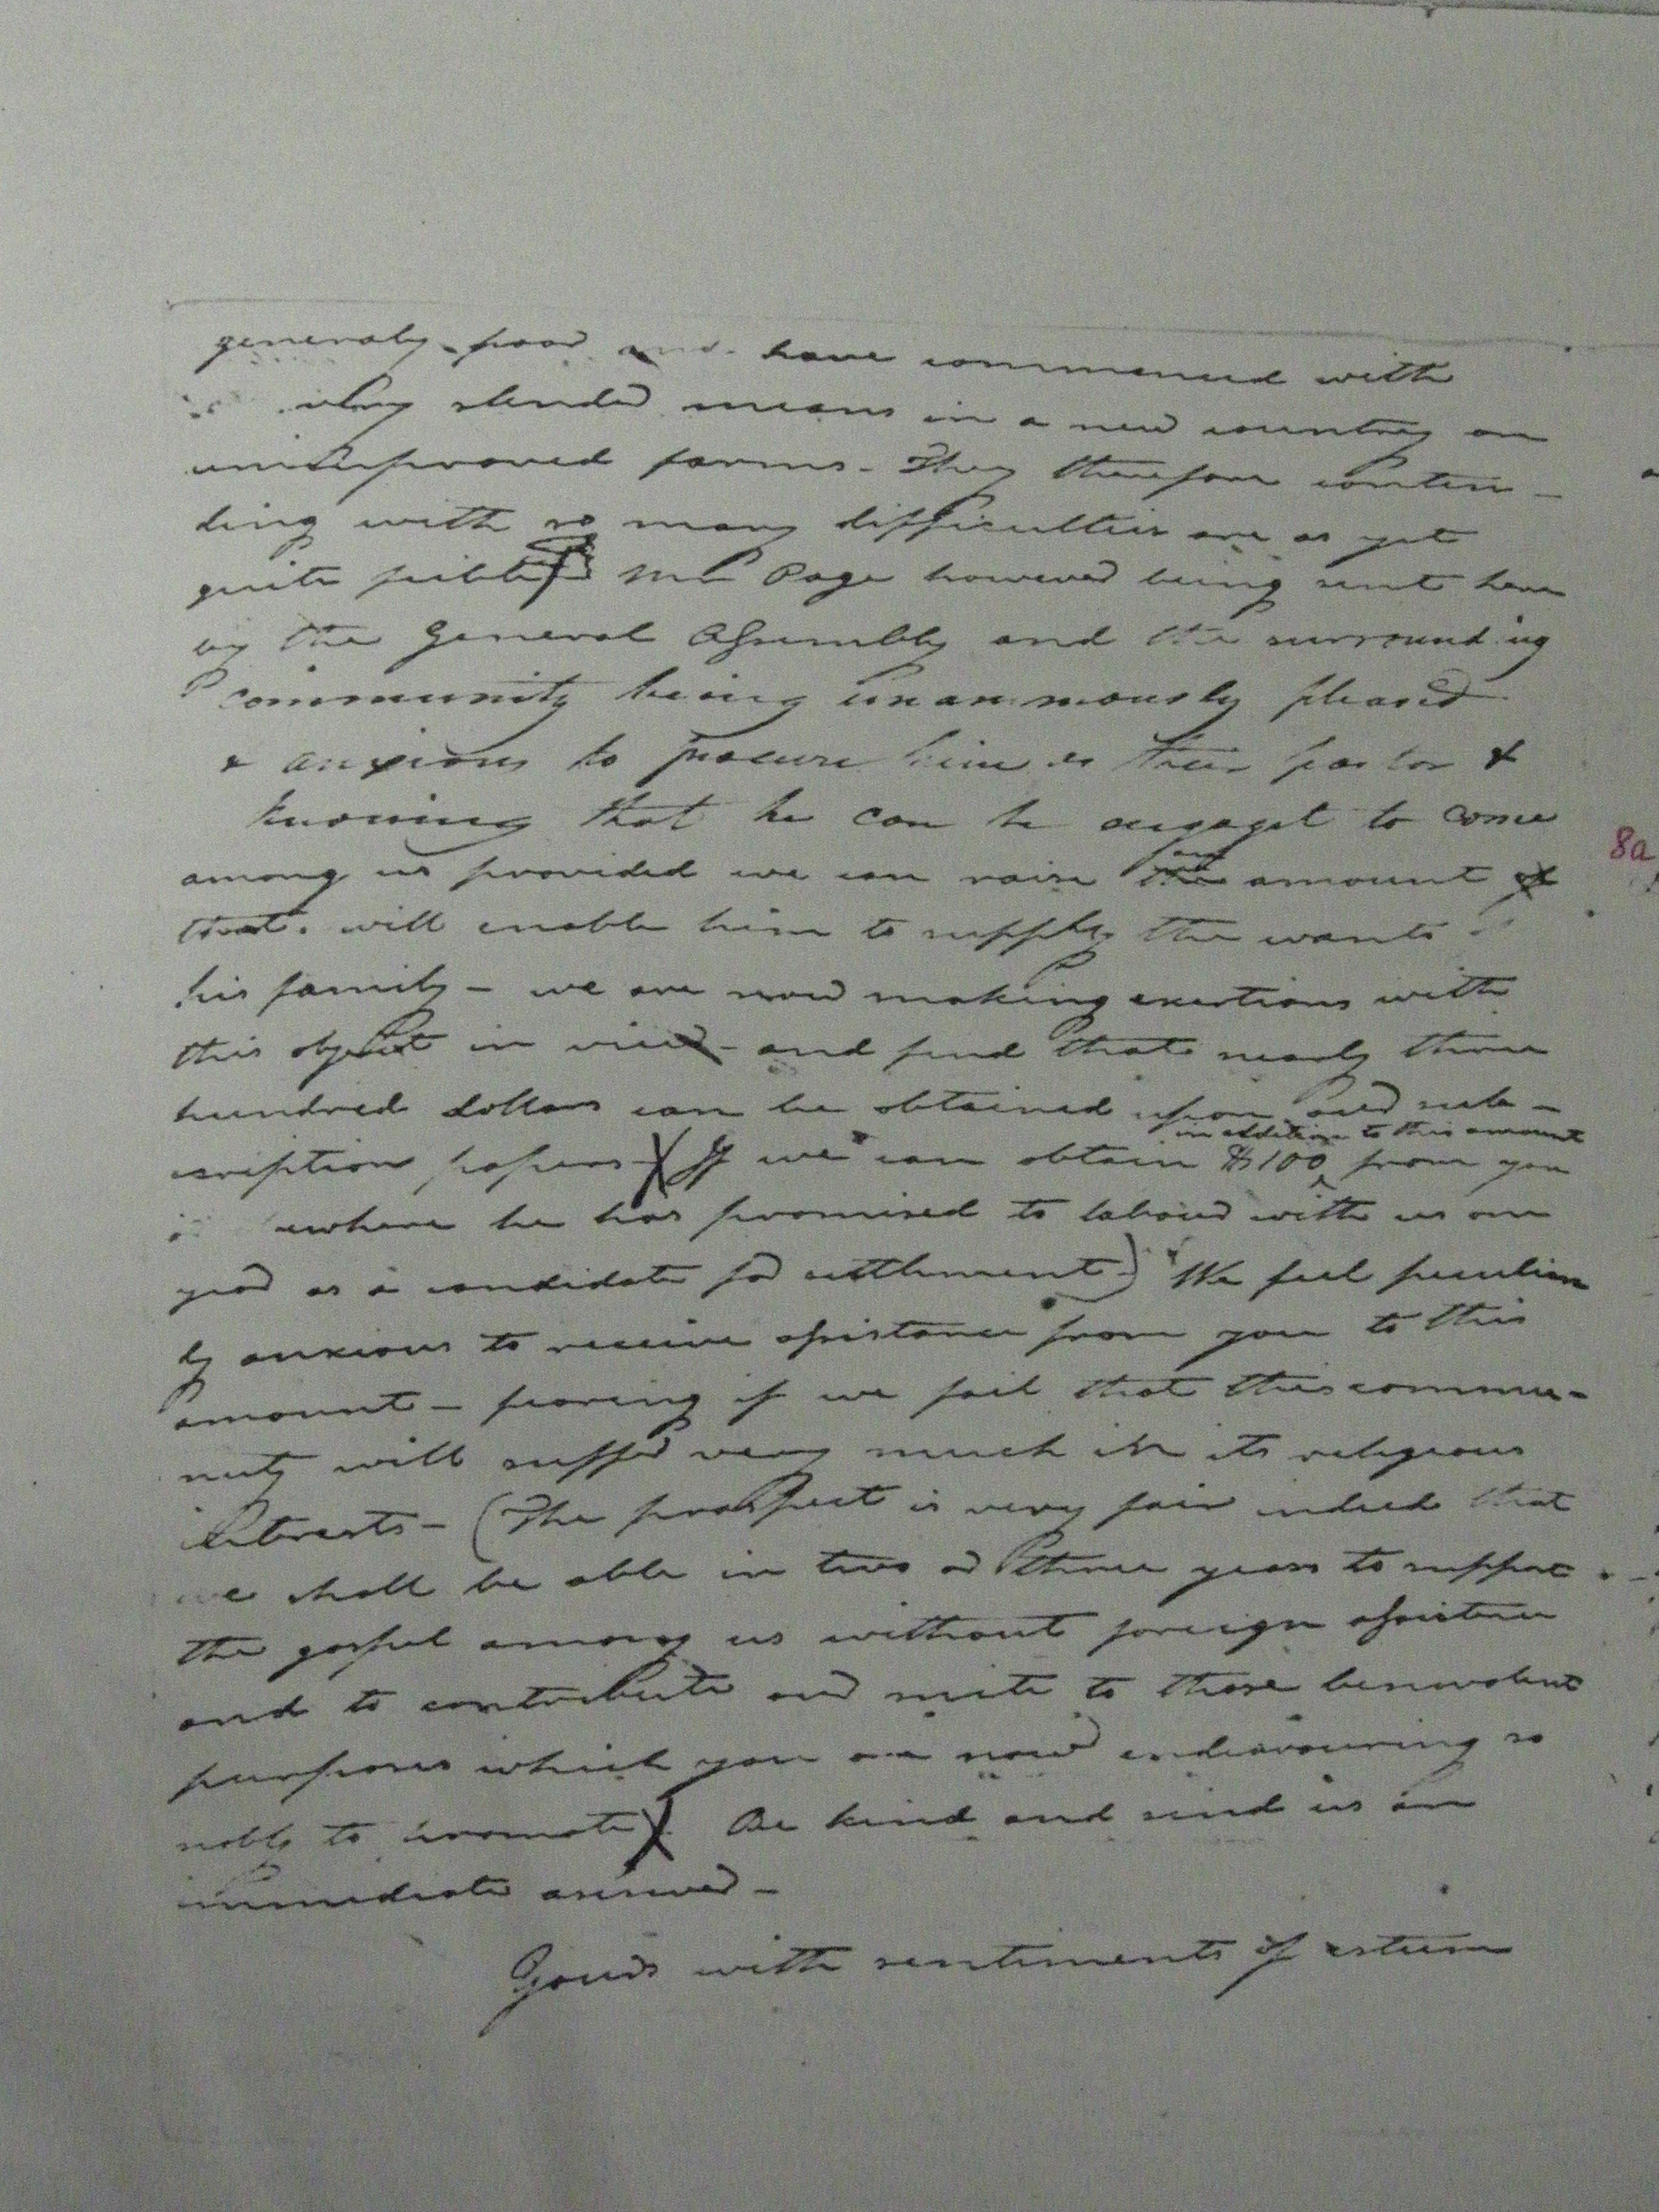 generaly poor and have commenced with
very slender means in a new country on
unimproved farms - They therefore conten-
ding with so many difficulties are as yet
quite feeble Mr Page however being sent here
by the General Assembly and the surrounding
community being unanimously pleased
& anxious to procure him as their pastor &
knowing that he can be engaged to come
among us provided we can raise an amount
that will enable him to supply the wants
his family - we are now making exertions with
this object in view - and find that nearly three
hundred dollars can be obtained upon our sub-
in addition to this amount
scription papers If we can obtain $100 from you
where he has promised to labour with us one
year as a candidate for settlement) We feel peculiar
ly anxious to receive assistance from you to this
amount - fearing if we fail that this commu-
nity will suffer very much in its religious
interests - (The prospect is very fair indeed that
we shall be able in two or three years to support
the gospel among us without foreign assistance
and to contribute our mite to those benevolent
purposes which you are now endeavouring so
nobly to promote) Be kind and send us an
immediate answer -
Yours with sentiments of esteem
8a